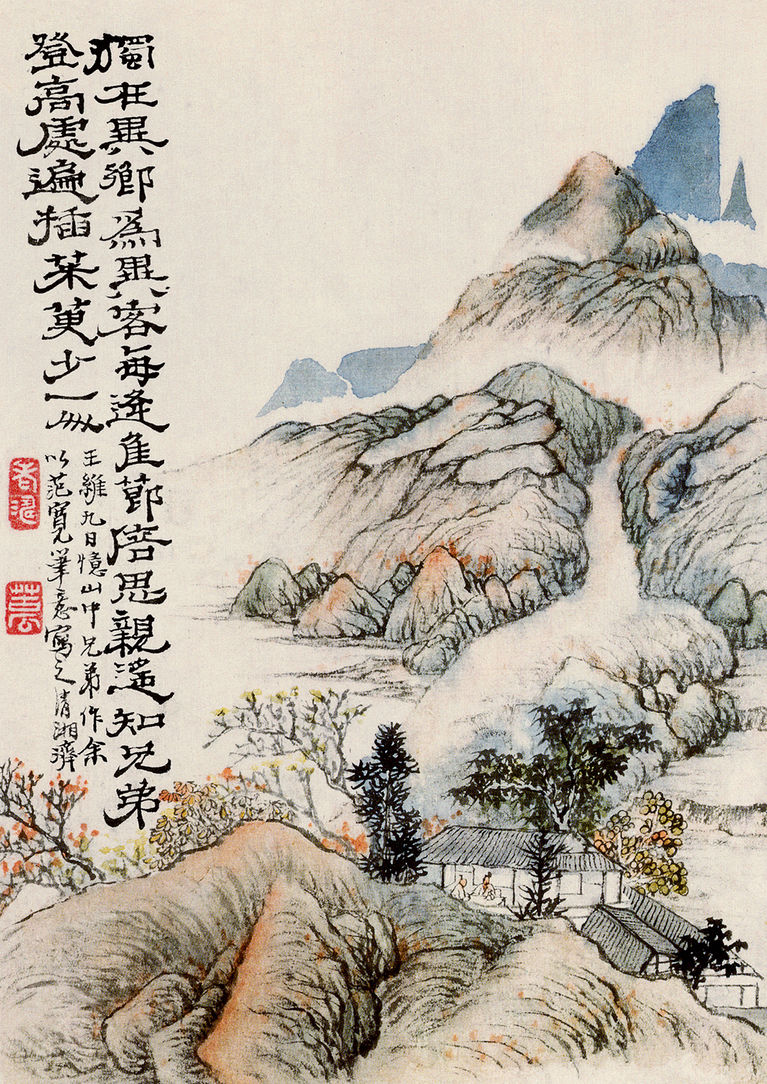 獨在異鄉爲異客每逢佳節倍思親遥知兄弟
登高處遍插茱萸少一人
王維九日憶山中兄弟作余
以范寬筆意寫之清湘濟
老濤